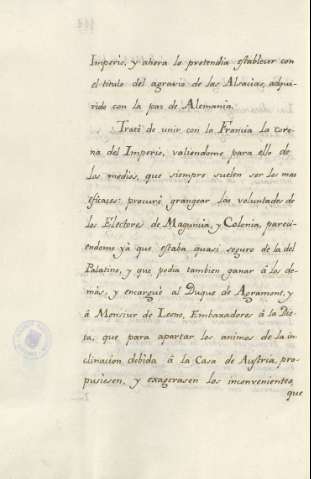 Imperio, y ahora lo pretendia establecer con
el titulo del agravio de las Alsacias, adqui-
rido con la paz de Alemania.
Traté de unir con la Francia la coro-
na del Imperio, valiendome para ello de
los medios, que siempre suelen ser los mas
eficaces: procuré grangear las voluntades de
los Electores de Maguncia, y Colonia, pareci-
endome yà que estaba quasi seguro de la del
Palatino, y que podia tambien ganar á los de-
más, y encargué al Duque de Agramont, y
á Monsiur de Leone, Embaxadores á la Die-
ta, que para apartar los animos de la in-
clinacion debida á la Casa de Austria, pro-
pusiesen, y exagerasen los inconvenientes,
que